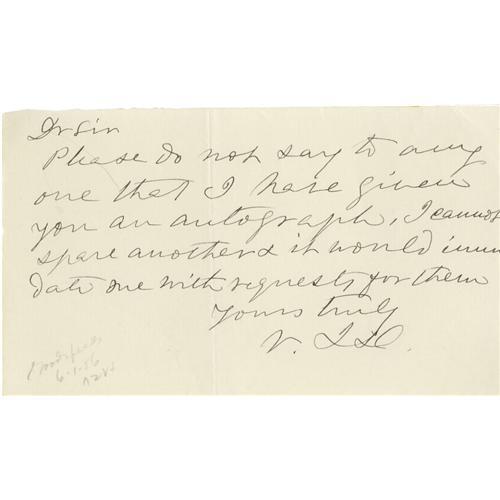 Dr Sir
Please do not say to any
one that I have given
you an autograph, I cannot
spare another & it would inun
date me with requests for them
Yours truly
V.
6-1-56